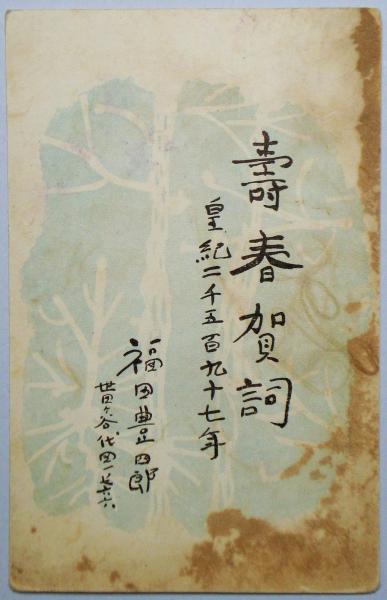 壽春賀詞
皇紀二千五百九十七年
福田豊四郎
世田ヶ谷代田一ノ七六六